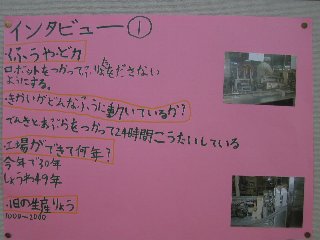 インタビュー①
・くふうやどりょく
ロボットをつかってふりょうをださない
ようにする。
・きかいがどんなふうに動いているか？
でんきとあぶらをつかって24時間こうたいしている
・工場ができて何年？
今年で30年
しょうわ49年
・1日の生産りょう
1000〜2000